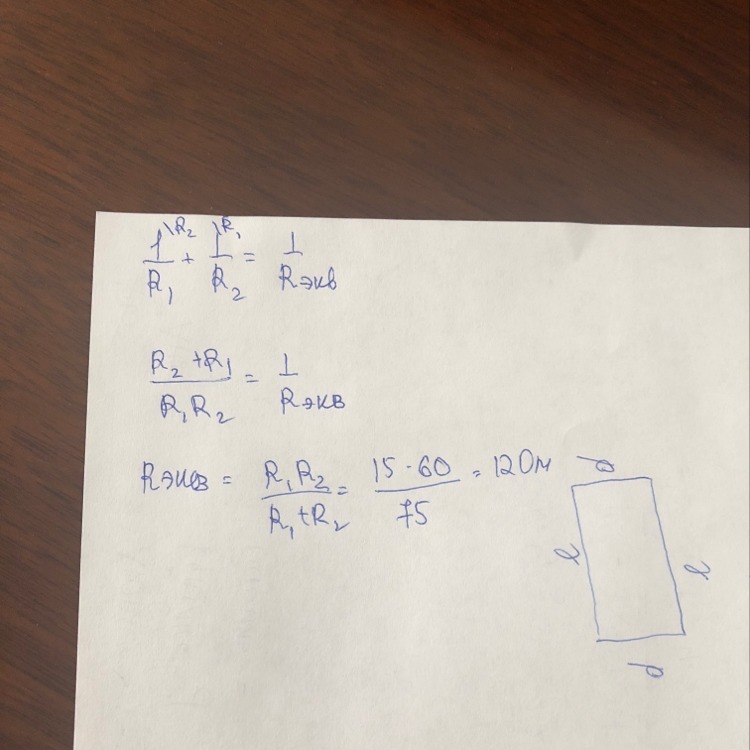 1\R₂/R₁ + 1\R₁/R₂ = 1/Rэкв
R₂ + R₁/R₁R₂ = 1/Rэкв
Rэкв = R₁R₂/R₁+R₂ = 15·60/75 = 12 Ом